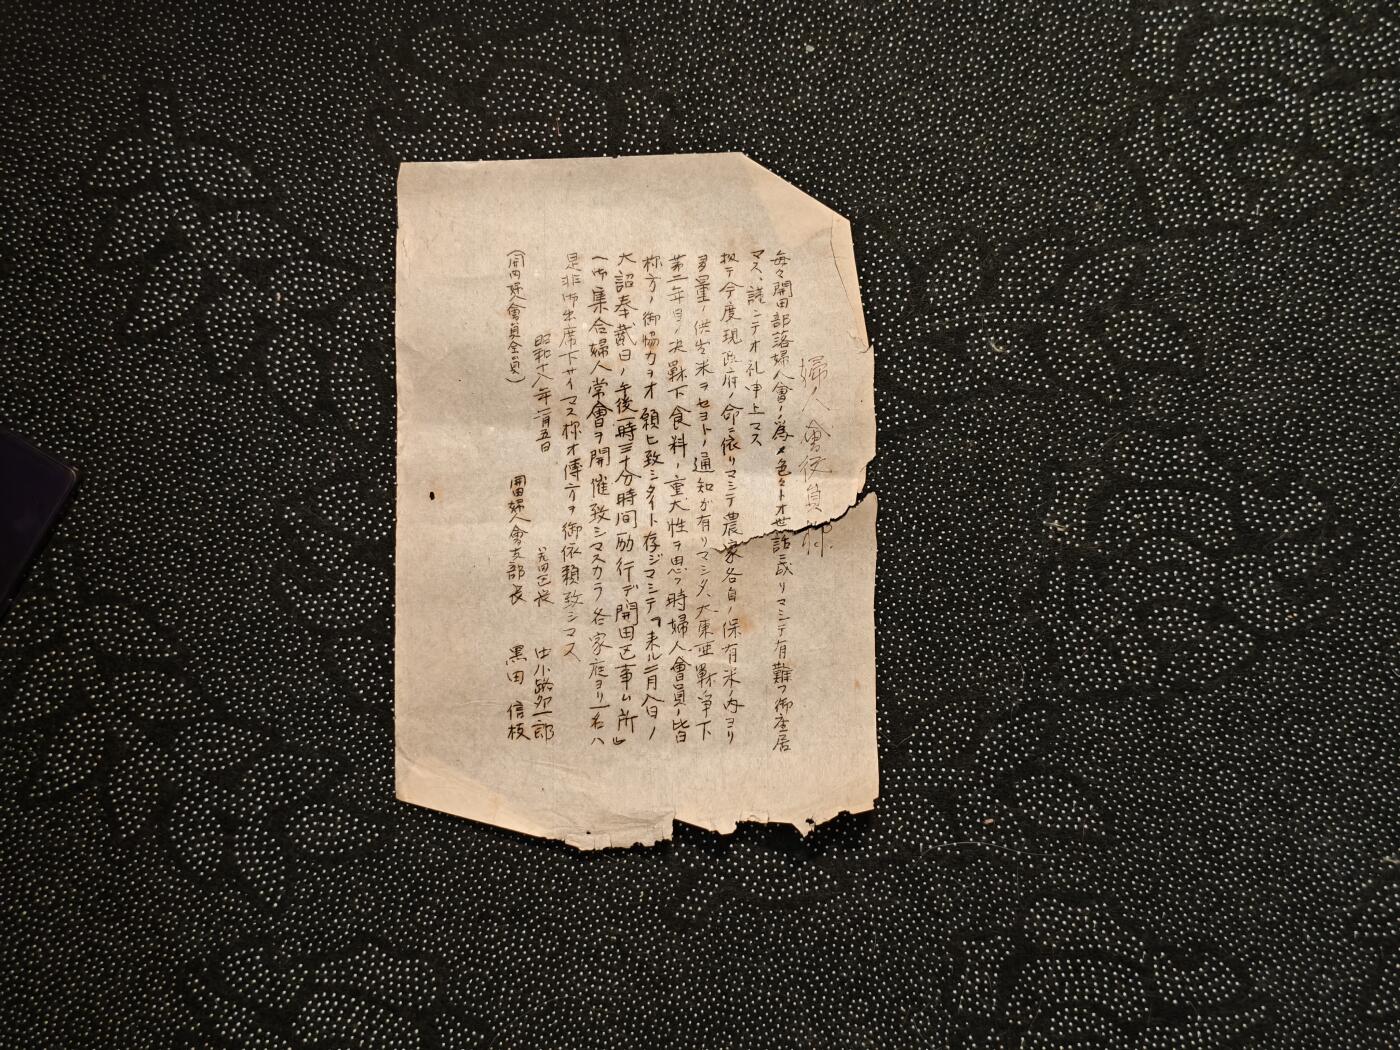 婦人會役員様
毎々開田部落婦人會ノ為メ色々トオ世話ニ成リマシテ有難フ御座居
マス、誌ニテオ礼申上マス
扨テ今度現政府ノ命ニ依リマシテ農家各自ノ保有米ノ内ヨリ
多量ノ供出米ヲセヨトノ通知ガ有リマシタ、大東亜戦争下
第二年目ノ決戦下食料ノ重大性ヲ思フ時婦人會員ノ皆
様方ノ御協力ヲオ願ヒ致シタイト存ジマシテ『来ル二月八日ノ
大詔奉戴日ノ午後一時三十分時間励行デ開田区事ム所』
ヘ御集合婦人常會ヲ開催致シマスカラ各家庭ヨリ一名ハ
是非御出席下サイマス様オ傳方ヲ御依頼致シマス
昭和十八年二月五日
開田区長 小路夘一郎
開田婦人會支部長 黒田信枝
(開内婦人會員全員)